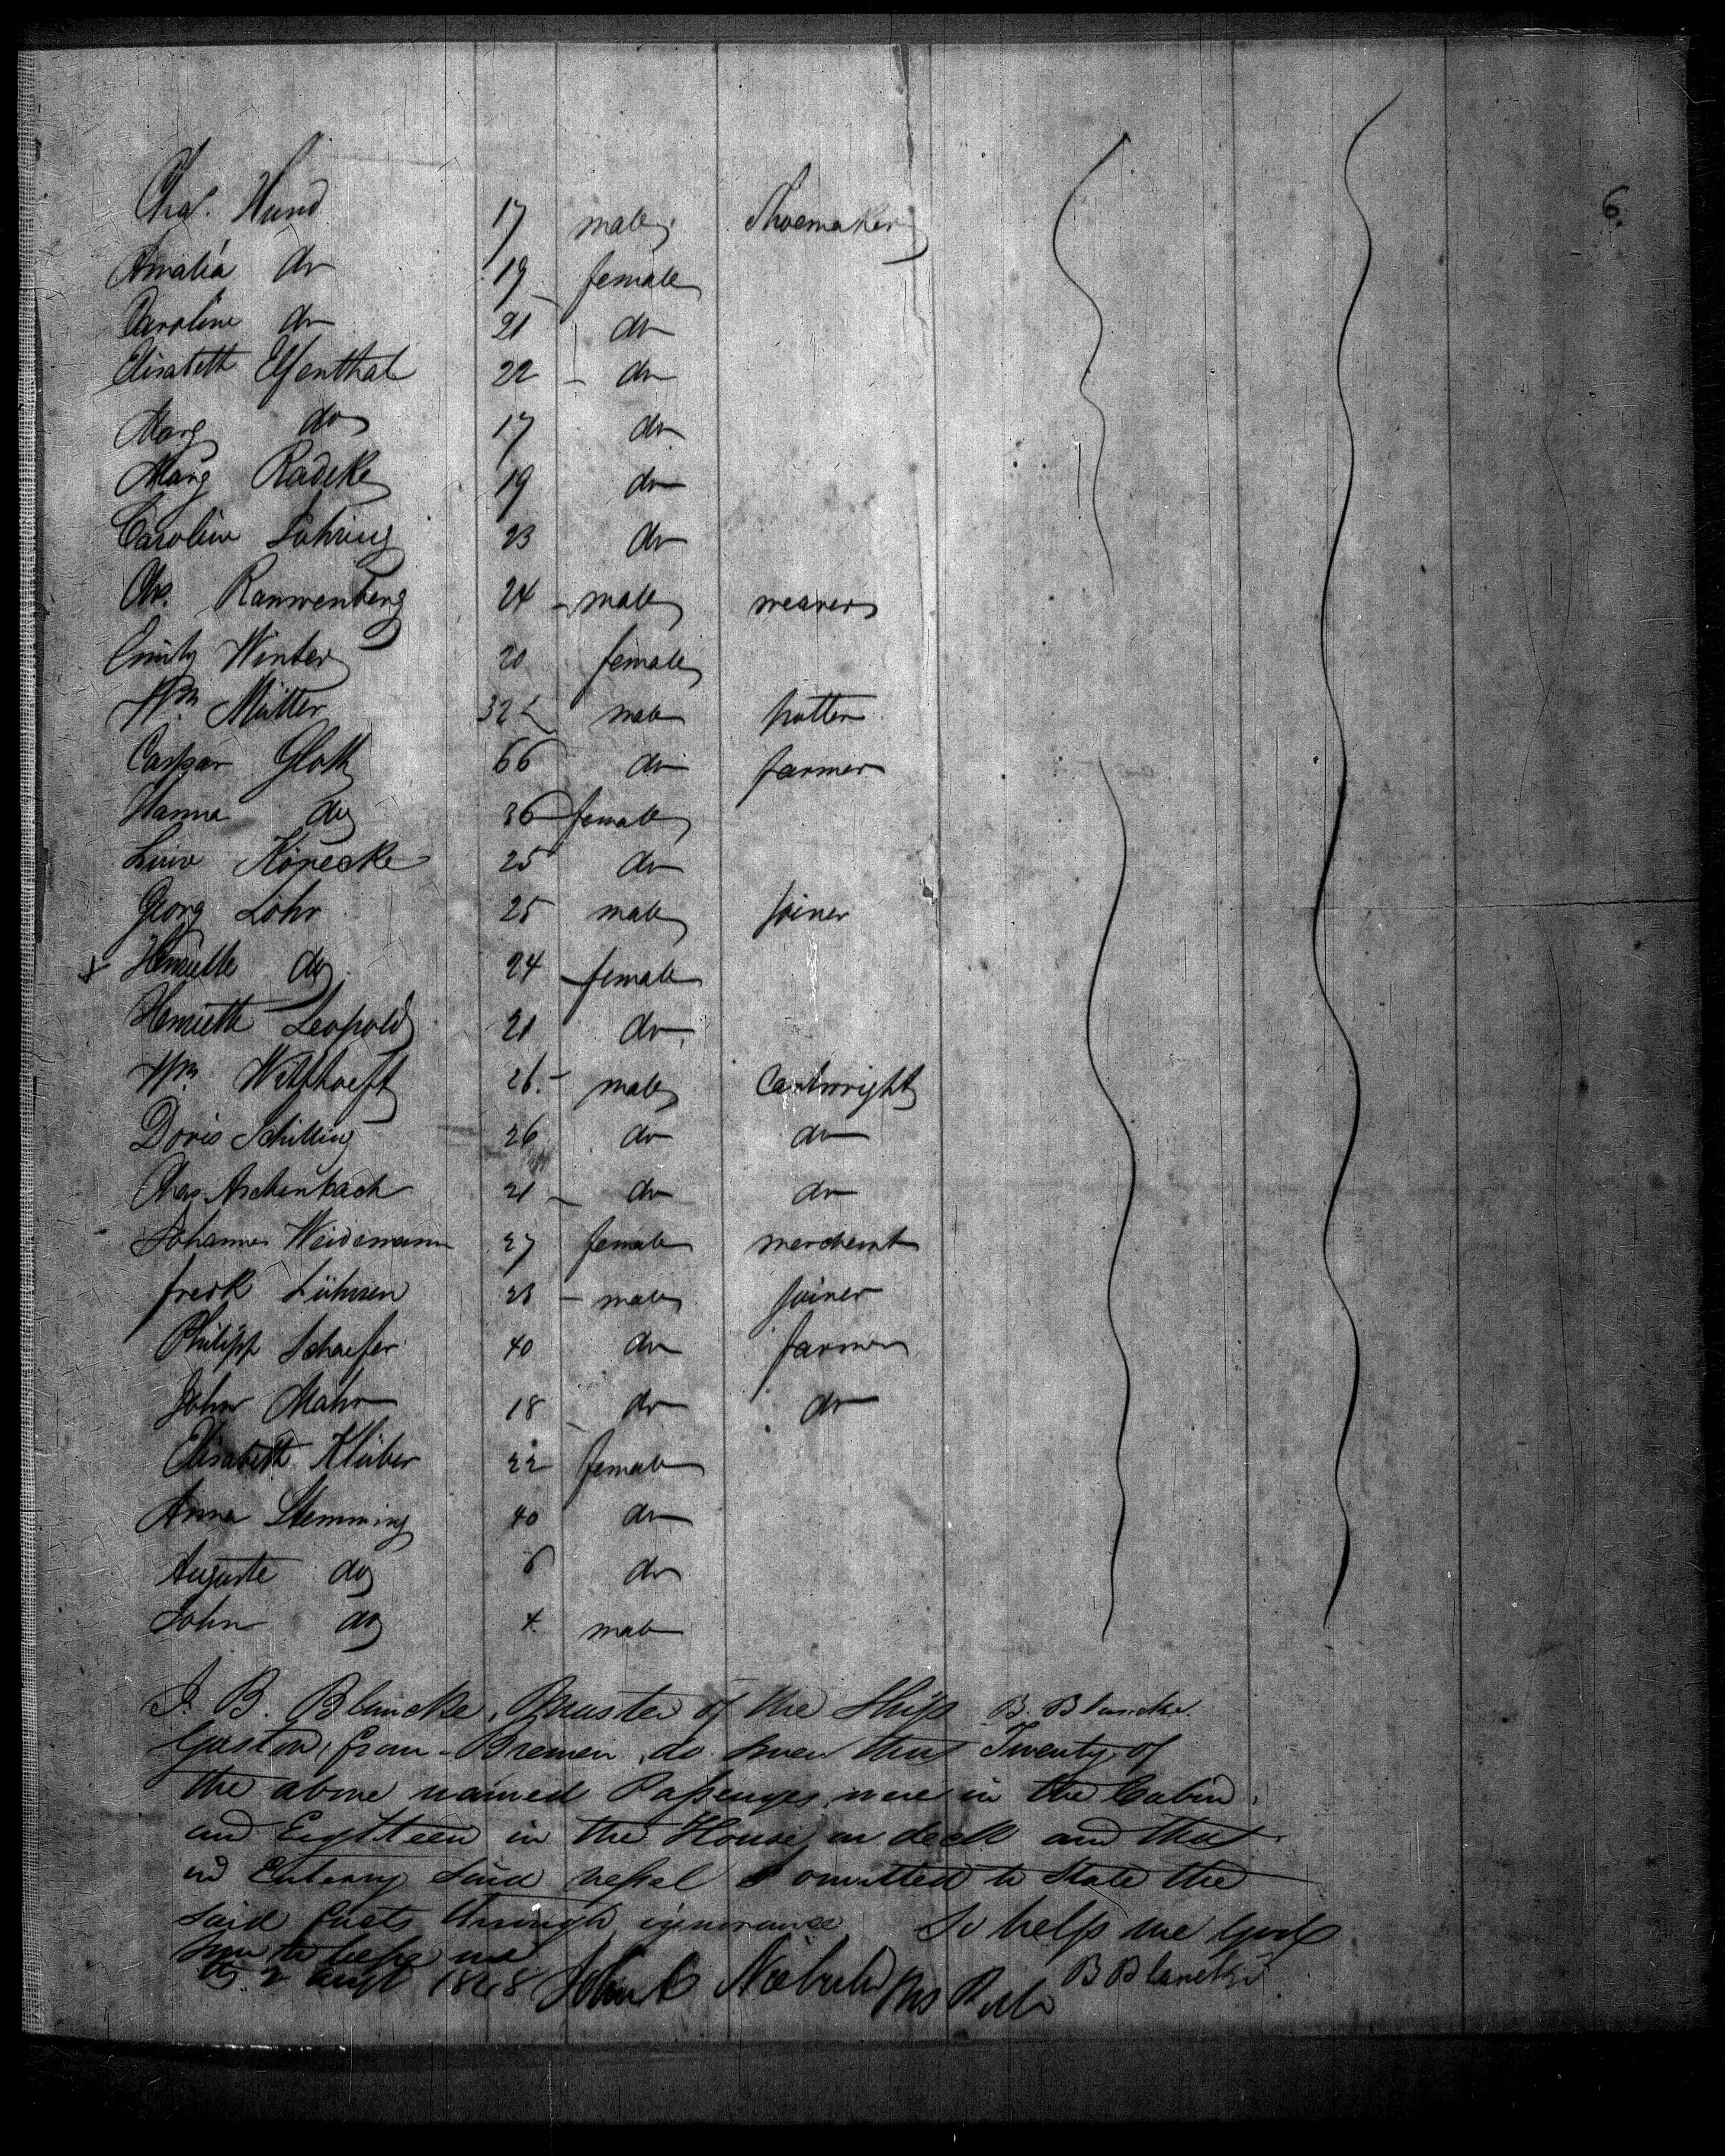 6.
Chas. Hund 17 male Shoemaker
Amalia do 19 female
Caroline do 21 do
Elisabeth Elfenthal 22 do
Marg do 17 do
Marg Radeke 19 do
Caroline Luhring 23 do
Chs. Rannenberg 24 male weaver
Emily Winter 20 female
Wm. Mütter 32 male potter
Caspar Gloth 66 do farmer
Hanna do 36 female
Luise Könecke 25 do
Georg Löhr 25 male joiner
x Henriette do 24 female
Henriette Leopold 21 do
Wm. Witthoeft 26 male Cartwright
Doris Schilling 26 do do
Chas Aschenbach 21 do do
Johannes Weidemann 27 female merchant
fredk Lühsen 23 male joiner
Philipp Schaefer 40 do farmer
John Mahr 18 do do
Elisabeth Klüber 22 female
Anna Stemming 40 do
Auguste do 6 do
John do 4 male
I. B. Blancke, Master of the Ship B. Blancke.
Gaston, from Bremen, do swear that Twenty of
the above named Passengers were in the Cabin
and Eighteen in the House on deck and that
in Entering said vessel I omitted to State the
said facts through ignorance So help me God
before me B Blancke
2 Augt 1848